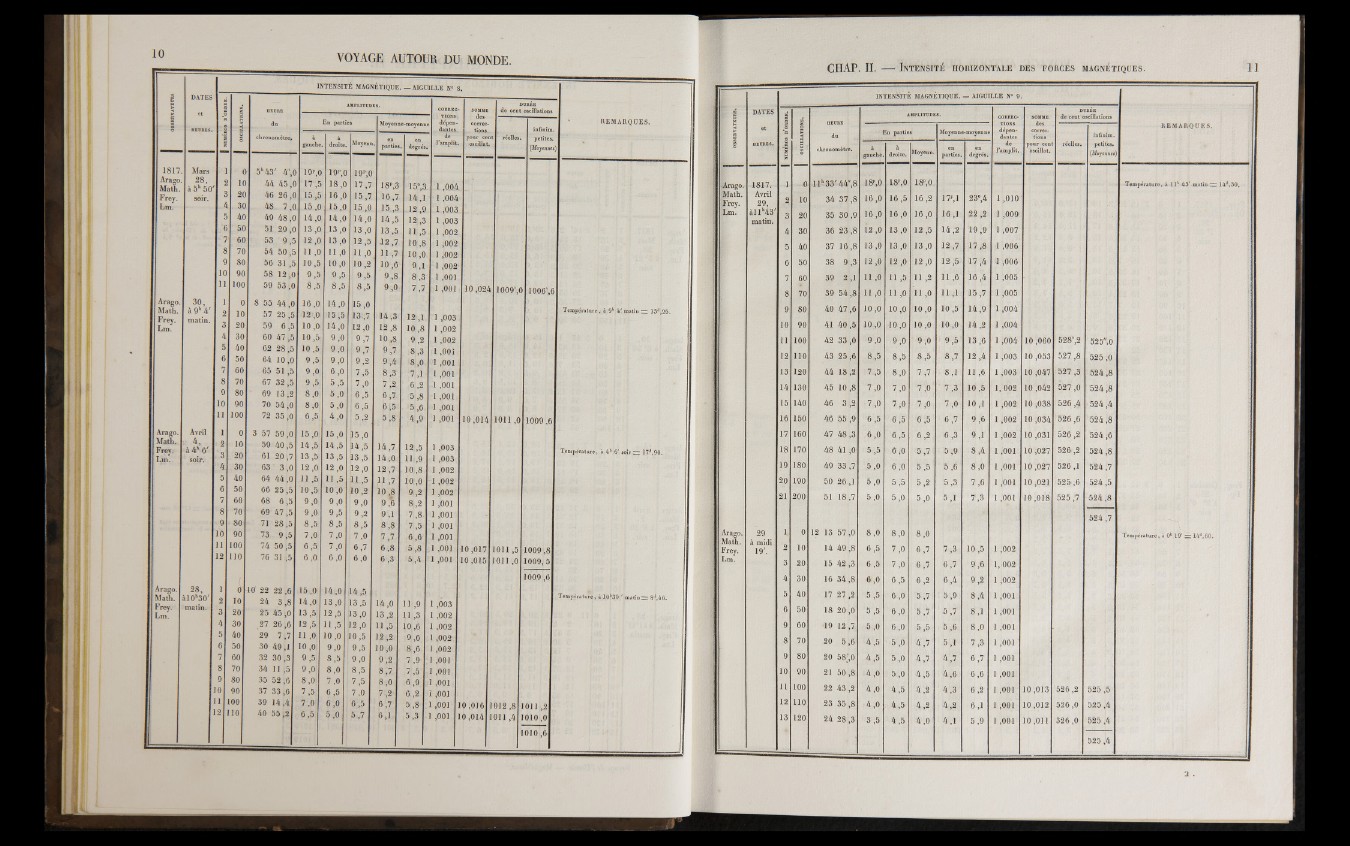 10
VOYAGE AUTOUR DU MONDE.
INTENSITÉ MAGNÉTIQUE. — AIGUILLE N° 8.
OBSERVATEURS
DATES et HEURES.
NUMÉROS D'ORDRE.
OSCILLATIONS.
HEURE du chronomètre.
AMPLITUDES.
En parties
à gauche.
à droite.
Moyenn.
Moyenne-moyenne
en parties.
en degrés.
CORRECTIONS dépendantes de l'amplit.
SOMME des corrections pour cent oscillat.
DURÉE de cent oscillations
réelles.
infinim. petites. (Moyennes)
REMARQUES.
1817. Mars 28, à 5h 50' soir.
Arago. Math. Frey. Lm.
1 0 5h 43' 4",0 19p,0 19p,0 19p,0
2 10 44 45,0 17,5 18,0 17,7 18p,3 15°,3 1,004
3 20 46 26,0 15,5 16,0 15,7 16,7 14,1 1,004
4 30 48 7,0 15,0 15,0 15,0 15,3 12,9 1,003
5 40 49 48,0 14,0 14,0 14,0 14,5 12,3 1,003
6 50 51 29,0 13,0 13,0 13,0 13,5 11,5 1,002
7 60 53 9,5 12,0 13,0 12,5 12,7 10,8 1,002
8 70 54 50,5 11,0 11,0 11,0 11,7 10,0 1,002
9 80 56 31,5 10,5 10,0 10,2 10,6 9,1 1,002
10 90 58 12,0 9,5 9,5 9,5 9,8 8,3 1,001
11 100 59 53,0 8,5 8,5 8,5 9,0 7,7 1,001 10,024 1009",0 1006",6
Arago. Math. Frey. Lm.
30, à 9h 4' matin.
1 0 8 55 44,0 16,0 14,0 15,0
2 10 57 25,5 12,0 15,5 13,7 14,3 12,1 1,003
3 20 59 6,5 10,0 14,0 12,0 12,8 10,8 1,002
4 30 60 47,5 10,5 9,0 9,7 10,8 9,2 1,002
5 40 62 28,5 10,5 9,0 9,7 9,7 8,3 1,001
6 50 64 10,0 9,5 9,0 9,2 9,4 8,0 1,001
7 60 65 51,5 9,0 6,0 7,5 8,3 7,1 1,001
8 70 67 32,5 9,5 5,5 7,0 7,2 6,2 1,001
9 80 69 13,2 8,0 5,0 6,5 6,7 5,8 1,001
10 90 70 54,0 8,0 5,0 6,5 6,5 5,6 1,001
11 100 72 35,0 6,5 4,0 5,2 5,8 4,9 1,001 10,014 1011,0 1009,6
Température, à 9h 4' matin = 15°,99.
Arago. Math. Frey. Lm.
Avril 4, à 4h 6' soir.
1 0 3 57 59,0 15,0 15,0 15,0
2 10 59 40,5 14,5 14,5 14,5 14,7 12,5 1,003
3 20 61 20,7 13,5 13,5 13,5 14,0 11,9 1,003
4 30 63 3,0 12,0 12,0 12,0 12,7 10,8 1,002
5 40 64 44,0 11,5 11,5 11,5 11,7 10,0 1,002
6 50 66 25,5 10,5 10,0 10,2 10,8 9,2 1,002
7 60 68 6,5 9,0 9,0 9,0 9,6 8,2 1,001
8 70 69 47,5 9,0 9,5 9,2 9,1 7,8 1,001
9 80 71 28,5 8,5 8,5 8,5 8,8 7,5 1,001
10 90 73 9,5 7,0 7,0 7,0 7,7 6,6 1,001
11 100 74 50,5 6,5 7,0 6,7 6,8 5,8 1,001 10,017 1011,5 1009,8
12 110 76 31,5 6,0 6,0 6,0 6,3 5,4 1,001 10,015 1011,0 1009,5
1009,6
Température, à 4h 6' soir = 17°,94.
Arago. Math. Frey. Lm.
28, à 10h 30' matin.
1 0 10 22 22,6 15,0 14,0 14,5
2 10 24 3,8 14,0 13,0 13,5 14,0 11,9 1,003
3 20 25 45,0 13,5 12,5 13,0 13,2 11,3 1,002
4 30 27 26,6 12,5 11,5 12,0 11,5 10,6 1,002
5 40 29 7,7 11,0 10,0 10,5 12,2 9,6 1,002
6 50 30 49,1 10,0 9,0 9,5 10,0 8,6 1,002
7 60 32 30,3 9,5 8,5 9,0 9,2 7,9 1,001
8 70 34 11,5 9,0 8,0 8,5 8,7 7,5 1,001
9 80 35 52,6 8,0 7,0 7,5 8,0 6,9 1,001
10 90 37 33,6 7,5 6,5 7,0 7,2 6,2 1,001
11 100 39 14,4 7,0 6,0 6,5 6,7 5,8 1,001 10,016 1012,8 1011,2
12 110 40 55,2 6,5 5,0 5,7 6,1 5,3 1,001 10,014 1011,4 1010,0
1010,6
CHAP. II. — INTENSITÉ HORIZONTALE DES FORCES MAGNÉTIQUES.
11
INTENSITÉ MAGNÉTIQUE. — AIGUILLE N° 9.
OBSERVATEURS.
DATES et HEURES.
NUMÉROS D'ORDRE.
OSCILLATIONS.
HEURE du chronomètre.
AMPLITUDES.
En parties
à gauche.
à droite.
Moyenn.
Moyenne-moyenne
en parties.
en degrés.
CORRECTIONS dépendantes de l'amplit.
SOMME des corrections pour cent oscillat.
DURÉE de cent oscillations
réelles.
infinim. petites. (Moyennes)
REMARQUES.
Arago. Math. Frey. Lm.
1817. Avril 29, à 11h 43' matin.
1 0 11h 33' 44",8 18p,0 18p,0 18p,0
2 10 34 37,8 16,0 16,5 16,2 17p,1 23°,4 1,010
3 20 35 30,9 16,0 16,0 16,0 16,1 22,2 1,009
4 30 36 23,8 12,0 13,0 12,5 14,2 19,9 1,007
5 40 37 16,8 13,0 13,0 13,0 12,7 17,8 1,006
6 50 38 9,3 12,0 12,0 12,0 12,5 17,4 1,006
7 60 39 2,1 11,0 11,5 11,2 11,6 16,4 1,005
8 70 39 54,8 11,0 11,0 11,0 11,1 15,7 1,005
9 80 40 47,6 10,0 10,0 10,0 10,5 14,9 1,004
10 90 41 40,5 10,0 10,0 10,0 10,0 14,2 1,004
11 100 42 33,0 9,0 9,0 9,0 9,5 13,6 1,004 10,060 528",2 525",0
12 110 43 25,6 8,5 8,5 8,5 8,7 12,4 1,003 10,053 527,8 525,0
13 120 44 18,2 7,5 8,0 7,7 8,1 11,6 1,003 10,047 527,3 524,8
14 130 45 10,8 7,0 7,0 7,0 7,3 10,5 1,002 10,042 527,0 524,8
15 140 46 3,2 7,0 7,0 7,0 7,0 10,1 1,002 10,038 526,4 524,4
16 150 46 55,9 6,5 6,5 6,5 6,7 9,6 1,002 10,034 526,6 524,8
17 160 47 48,3 6,0 6,5 6,2 6,3 9,1 1,002 10,031 526,2 524,6
18 170 48 41,0 5,5 6,0 5,7 5,9 8,4 1,001 10,027 526,2 524,8
19 180 49 33,7 5,0 6,0 5,5 5,6 8,0 1,001 10,027 526,1 524,7
20 190 50 26,1 5,0 5,5 5,2 5,3 7,6 1,001 10,021 525,6 524,5
21 200 51 18,7 5,0 5,0 5,0 5,1 7,3 1,001 10,018 525,7 524,8
524,7
Température, à 11h 43' matin = 14°,50.
Arago. Math. Frey. Lm.
29 à midi 19'.
1 0 12 13 57,0 8,0 8,0 8,0
2 10 14 49,8 6,5 7,0 6,7 7,3 10,5 1,002
3 20 15 42,3 6,5 7,0 6,7 6,7 9,6 1,002
4 30 16 34,8 6,0 6,5 6,2 6,4 9,2 1,002
5 40 17 27,2 5,5 6,0 5,7 5,9 8,4 1,001
6 50 18 20,0 5,5 6,0 5,7 5,7 8,1 1,001
9 60 19 12,7 5,0 6,0 5,5 5,6 8,0 1,001
8 70 20 5,6 4,5 5,0 4,7 5,1 7,3 1,001
9 80 20 58,0 4,5 5,0 4,7 4,7 6,7 1,001
10 90 21 50,8 4,0 5,0 4,5 4,6 6,6 1,001
11 100 22 43,2 4,0 4,5 4,2 4,3 6,2 1,001 10,013 526,2 525,5
12 110 23 35,8 4,0 4,5 4,2 4,2 6,1 1,001 10,012 526,0 525,4
13 120 24 28,3 3,5 4,5 4,0 4,1 5,9 1,001 10,011 526,0 525,4
525,4
Température, à 0h 19' = 14°,60.
3.